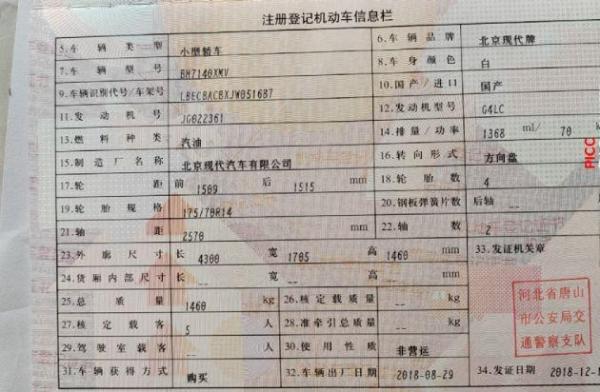 注册登记机动车信息栏
5.车辆类型 小型轿车 6.车辆品牌 北京现代牌
7.车辆型号 BH7140XMV 8.车身颜色 白
9.车辆识别代号/车架号 LBECBACBXJW051687 10.国产/进口 国产
11.发动机号 JG022361 12.发动机型号 G4LC
13.燃料种类 汽油 14.排量/功率 1368 ml/ 70
15.制造厂名称 北京现代汽车有限公司 16.转向形式 方向盘
17.轮距 前 1509 后 1515 mm 18.轮胎数 4
19.轮胎规格 175/70R14 20.钢板弹簧片数 后轴 --
21.轴距 2570 mm 22.轴数 2
23.外廓尺寸 长 4300 宽 1705 高 1460 mm 33.发证机关章
24.货厢内部尺寸 长 -- 宽 -- 高 -- mm
25.总质量 1460 kg 26.核定载质量 -- kg
27.核定载客 5 人 28.准牵引总质量 -- kg
29.驾驶室载客 -- 人 30.使用性质 非营运
31.车辆获得方式 购买 32.车辆出厂日期 2018-08-29 34.发证日期 2018-12-1
河北省唐山
市公安局交
通警察支队
PICC